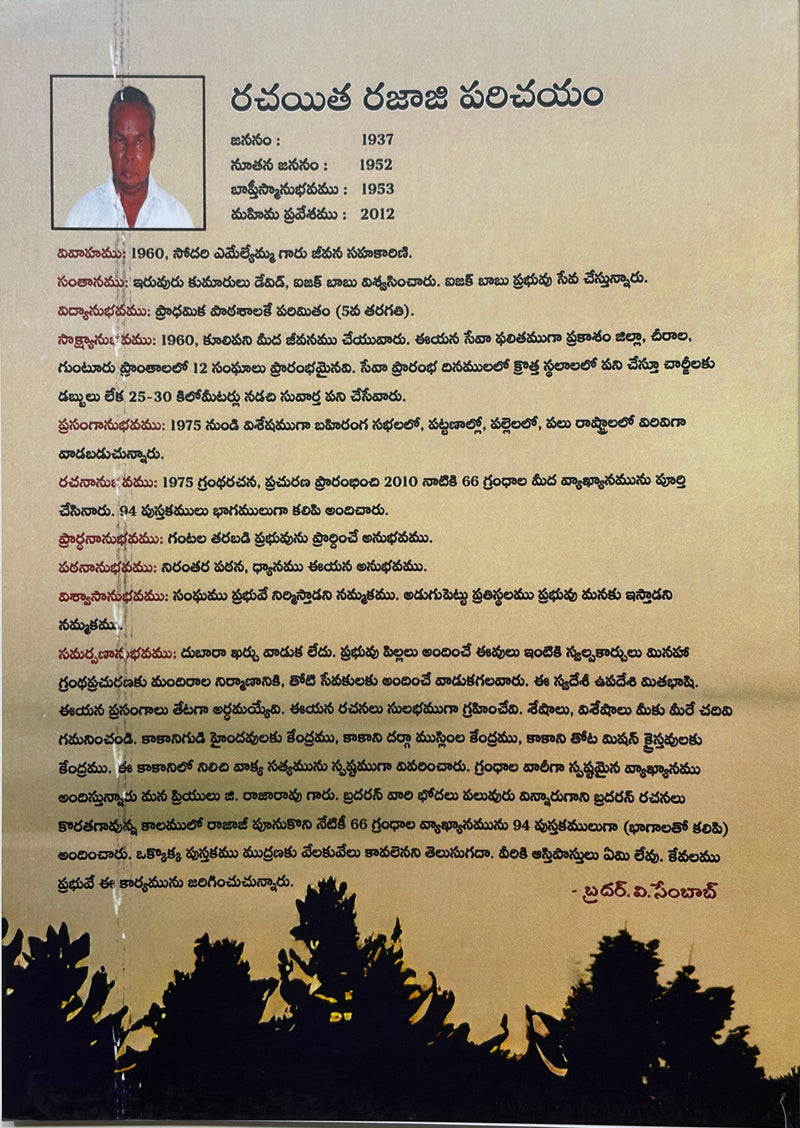 రచయిత రజాజి పరిచయం
జననం : 1937
నూతన జననం : 1952
బాప్తీస్మానుభవము : 1953
మహిమ ప్రవేశము : 2012
వివాహము: 1960, సోదరి ఎమేల్యేమ్మ గారు జీవన సహకారిణి.
సంతానము: ఇరువురు కుమారులు డేవిడ్, ఐజక్ బాబు విశ్వసించారు. ఐజక్ బాబు ప్రభువు సేవ చేస్తున్నారు.
విద్యానుభవము: ప్రాధమిక పాఠశాలకే పరిమితం (5వ తరగతి).
సాక్ష్యానుభవము: 1960, కూలిపని మీద జీవనము చేయువారు. ఈయన సేవా ఫలితముగా ప్రకాశం జిల్లా, చీరాల,
గుంటూరు ప్రాంతాలలో 12 సంఘాలు ప్రారంభమైనవి. సేవా ప్రారంభ దినములలో క్రొత్త స్థలాలలో పని చేస్తూ చార్జీలకు
డబ్బులు లేక 25-30 కిలోమీటర్లు నడచి సువార్త పని చేసేవారు.
ప్రసంగానుభవము: 1975 నుండి విశేషముగా బహిరంగ సభలలో, పట్టణాల్లో, పల్లెలలో, పలు రాష్ట్రాలలో విరివిగా
వాడబడుచున్నారు.
రచనానుభవము: 1975 గ్రంథరచన, ప్రచురణ ప్రారంభించి 2010 నాటికి 66 గ్రంధాల మీద వ్యాఖ్యానమును పూర్తి
చేసినారు. 94 పుస్తకములు భాగములుగా కలిపి అందిచారు.
ప్రార్ధనానుభవము: గంటల తరబడి ప్రభువును ప్రార్దించే అనుభవము.
పఠనానుభవము: నిరంతర పఠన, ధ్యానము ఈయన అనుభవము.
విశ్వాసానుభవము: సంఘము ప్రభువే నిర్మిస్తాడని నమ్మకము. అడుగుపెట్టు ప్రతిస్థలము ప్రభువు మనకు ఇస్తాడని
నమ్మకము.
సమర్పణానుభవము: దుబారా ఖర్చు వాడుక లేదు. ప్రభువు పిల్లలు అందించే ఈవులు ఇంటికి స్వల్పకార్చులు మినహా
గ్రంథప్రచురణకు మందిరాల నిర్మాణానికి, తోటి సేవకులకు అందించే వాడుకగలవారు. ఈ స్వదేశీ ఉపదేశి మితభాషి.
ఈయన ప్రసంగాలు తేటగా అర్ధమయ్యేవి. ఈయన రచనలు సులభముగా గ్రహించేవి. శేషాలు, విశేషాలు మీకు మీరే చదివి
గమనించండి. కాకానిగుడి హైందవులకు కేంద్రము, కాకాని దర్గా ముస్లింల కేంద్రము, కాకాని తోట మిషన్ క్రైస్తవులకు
కేంద్రము. ఈ కాకానిలో నిలిచి వాక్య సత్యమును స్పష్టముగా వివరించారు. గ్రంధాల వారీగా స్పష్టమైన వ్యాఖ్యానము
అందిస్తున్నారు మన ప్రియులు జి. రాజారావు గారు. బ్రదరన్ వారి భోదలు పలువురు విన్నారుగాని బ్రదరన్ రచనలు
కొరతగావున్న కాలములో రాజాజీ పూనుకొని నేటికీ 66 గ్రంధాల వ్యాఖ్యానమును 94 పుస్తకములుగా (భాగాలతో కలిపి)
అందించారు. ఒక్కొక్క పుస్తకము ముద్రణకు వేలకువేలు కావలెనని తెలుసుగదా. వీరికి ఆస్తిపాస్తులు ఏమి లేవు. కేవలము
ప్రభువే ఈ కార్యమును జరిగించుచున్నారు.
- బ్రదర్.వి.సేంబాబ్